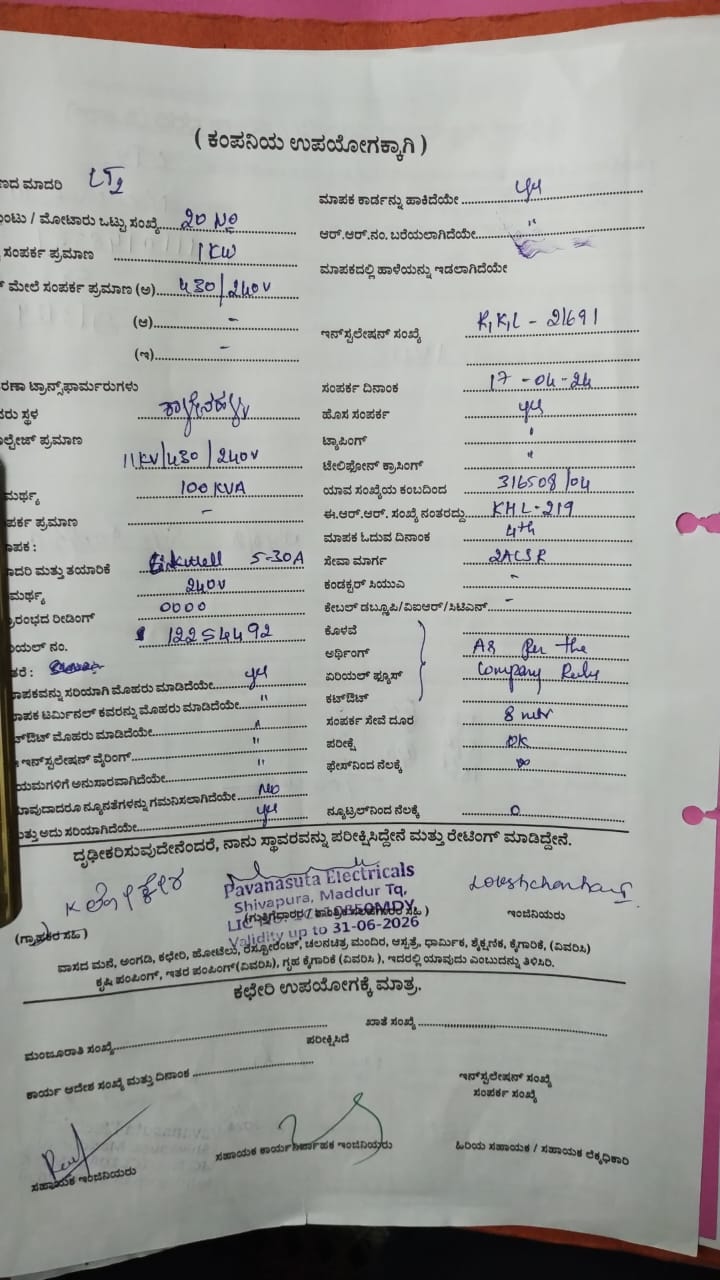 ( ಕಂಪನಿಯ ಉಪಯೋಗಕ್ಕಾಗಿ )
ಣದ ಮಾದರಿ LT2
ಂಟು / ಮೋಟಾರು ಒಟ್ಟು ಸಂಖ್ಯೆ 20 No
ಸಂಪರ್ಕ ಪ್ರಮಾಣ 1 KW
ಮೇಲೆ ಸಂಪರ್ಕ ಪ್ರಮಾಣ (ಅ) 430/240V
(ಆ) -
(ಇ) -
ರಣಾ ಟ್ರಾನ್ಸ್‌ಫಾರ್ಮರುಗಳು
ರು ಸ್ಥಳ
ಲ್ಟೇಜ್ ಪ್ರಮಾಣ 11KV/430/240V
ಮರ್ಥ್ಯ 100 KVA
ಪರ್ಕ ಪ್ರಮಾಣ -
ಾಪಕ :
ಾದರಿ ಮತ್ತು ತಯಾರಿಕೆ 5-30A
ಮರ್ಥ್ಯ 240V
ರಂಭದ ರೀಡಿಂಗ್ 0000
ಯಲ್ ನಂ. 12254492
ತರೆ :
ಾಪಕವನ್ನು ಸರಿಯಾಗಿ ಮೊಹರು ಮಾಡಿದೆಯೇ yes
ಾಪಕ ಟರ್ಮಿನಲ್ ಕವರನ್ನು ಮೊಹರು ಮಾಡಿದೆಯೇ "
ಟ್‌ಔಟ್ ಮೊಹರು ಮಾಡಿದೆಯೇ "
ಇನ್‌ಸ್ಟಲೇಷನ್ ವೈರಿಂಗ್ "
ಯಮಗಳಿಗೆ ಅನುಸಾರವಾಗಿದೆಯೇ "
ಾವುದಾದರೂ ನ್ಯೂನತೆಗಳನ್ನು ಗಮನಿಸಲಾಗಿದೆಯೇ No
ತ್ತು ಅದು ಸರಿಯಾಗಿದೆಯೇ yes
ಮಾಪಕ ಕಾರ್ಡನ್ನು ಹಾಕಿದೆಯೇ yes
ಆರ್.ಆರ್.ನಂ. ಬರೆಯಲಾಗಿದೆಯೇ "
ಮಾಪಕದಲ್ಲಿ ಹಾಳೆಯನ್ನು ಇಡಲಾಗಿದೆಯೇ
ಇನ್‌ಸ್ಟಲೇಷನ್ ಸಂಖ್ಯೆ K,K,L - 21691
ಸಂಪರ್ಕ ದಿನಾಂಕ 17-04-24
ಹೊಸ ಸಂಪರ್ಕ yes
ಟ್ಯಾಪಿಂಗ್ "
ಟೆಲಿಫೋನ್ ಕ್ರಾಸಿಂಗ್ "
ಯಾವ ಸಂಖ್ಯೆಯ ಕಂಬದಿಂದ 316508/04
ಈ.ಆರ್.ಆರ್. ಸಂಖ್ಯೆ ನಂತರದ್ದು KHL-219
ಮಾಪಕ ಓದುವ ದಿನಾಂಕ 4th
ಸೇವಾ ಮಾರ್ಗ 2ACSR
ಕಂಡಕ್ಟರ್ ಸಿಯುಎ -
ಕೇಬಲ್ ಡಬ್ಲೂಪಿ/ವಿಐಆರ್/ಸಿಟಿಎನ್ -
ಕೊಳವೆ
ಅರ್ಥಿಂಗ್ As Per the
ಏರಿಯಲ್ ಫ್ಯೂಸ್ Company Rules
ಕಟ್‌ಔಟ್
ಸಂಪರ್ಕ ಸೇವೆ ದೂರ 8 mtr
ಪರೀಕ್ಷೆ OK
ಫೇಸ್‌ನಿಂದ ನೆಲಕ್ಕೆ
ನ್ಯೂಟ್ರಲ್‌ನಿಂದ ನೆಲಕ್ಕೆ 0
ದೃಢೀಕರಿಸುವುದೇನೆಂದರೆ, ನಾನು ಸ್ಥಾವರವನ್ನು ಪರೀಕ್ಷಿಸಿದ್ದೇನೆ ಮತ್ತು ರೇಟಿಂಗ್ ಮಾಡಿದ್ದೇನೆ.
Pavanasuta Electricals
Shivapura, Maddur Tq,
Validity up to 31-06-2026
(ಗ್ರಾಹಕರ ಸಹಿ )
ಇಂಜಿನಿಯರು
ವಾಸದ ಮನೆ, ಅಂಗಡಿ, ಕಛೇರಿ, ಹೋಟೆಲು, ರೆಸ್ಟೋರೆಂಟ್, ಚಲನಚಿತ್ರ ಮಂದಿರ, ಆಸ್ಪತ್ರೆ, ಧಾರ್ಮಿಕ, ಶೈಕ್ಷಣಿಕ, ಕೈಗಾರಿಕೆ, (ವಿವರಿಸಿ)
ಕೃಷಿ ಪಂಪಿಂಗ್, ಇತರ ಪಂಪಿಂಗ್(ವಿವರಿಸಿ), ಗೃಹ ಕೈಗಾರಿಕೆ (ವಿವರಿಸಿ ), ಇದರಲ್ಲಿ ಯಾವುದು ಎಂಬುದನ್ನು ತಿಳಿಸಿರಿ.
ಕಛೇರಿ ಉಪಯೋಗಕ್ಕೆ ಮಾತ್ರ.
ಮಂಜೂರಾತಿ ಸಂಖ್ಯೆ
ಖಾತೆ ಸಂಖ್ಯೆ
ಪರೀಕ್ಷಿಸಿದೆ
ಕಾರ್ಯ ಆದೇಶ ಸಂಖ್ಯೆ ಮತ್ತು ದಿನಾಂಕ
ಇನ್‌ಸ್ಟಲೇಷನ್ ಸಂಖ್ಯೆ
ಸಂಪರ್ಕ ಸಂಖ್ಯೆ
ಸಹಾಯಕ ಇಂಜಿನಿಯರು
ಸಹಾಯಕ ಕಾರ್ಯನಿರ್ವಾಹಕ ಇಂಜಿನಿಯರು
ಹಿರಿಯ ಸಹಾಯಕ / ಸಹಾಯಕ ಲೆಕ್ಕಧಿಕಾರಿ